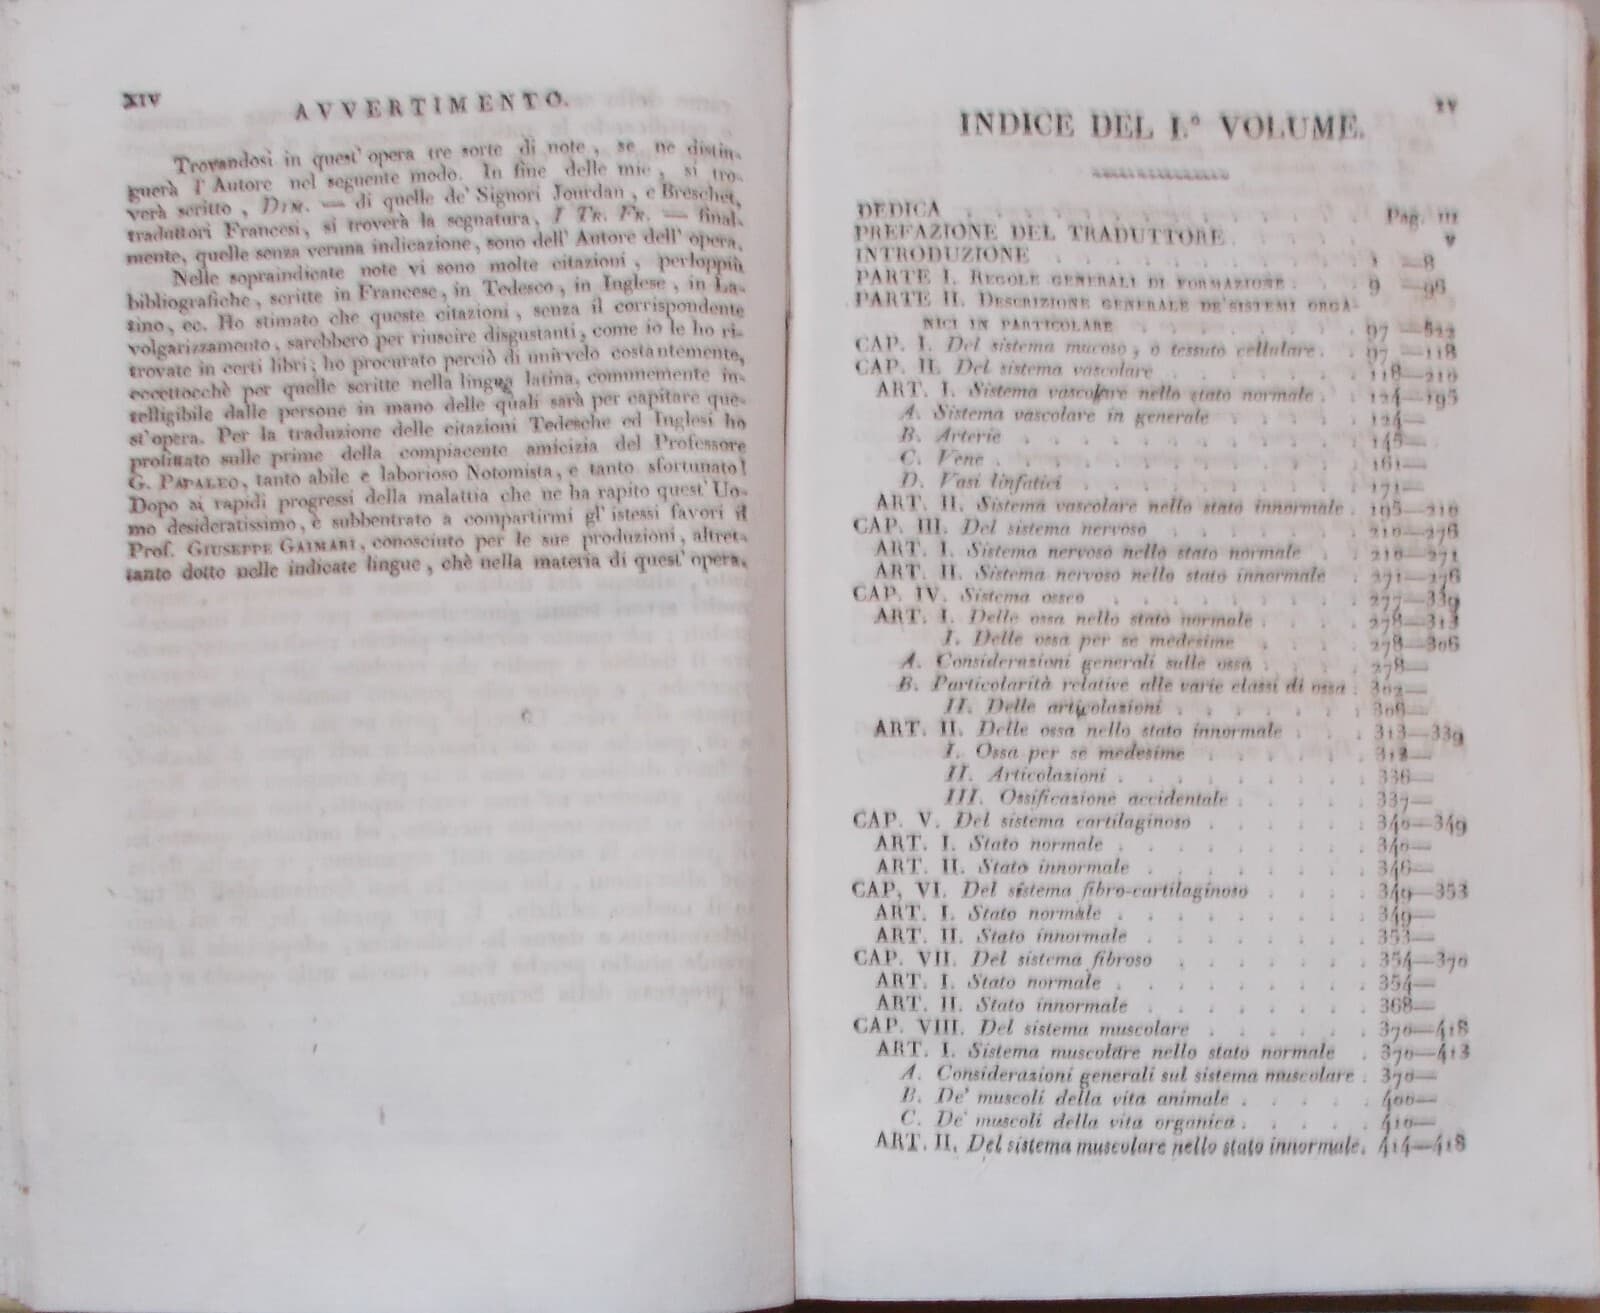 XIV
AVVERTIMENTO.
Trovandosi in quest' opera tre sorte di note, se ne distin-
guerà l'Autore nel seguente modo. In fine delle mie, si tro-
verà scritto, DIM. — di quelle de' Signori Jourdan, e Breschet,
traduttori Francesi, si troverà la segnatura, I TR. FR. — final-
mente, quelle senza veruna indicazione, sono dell' Autore dell' opera.
Nelle sopraindicate note vi sono molte citazioni, perloppiù
bibliografiche, scritte in Francese, in Tedesco, in Inglese, in La-
tino, ec. Ho stimato che queste citazioni, senza il corrispondente
volgarizzamento, sarebbero per riuscire disgustanti, come io le ho ri-
trovate in certi libri; ho procurato perciò di unirvelo costantemente,
eccettocchè per quelle scritte nella lingua latina, comunemente in-
telligibile dalle persone in mano delle quali sarà per capitare que-
st'opera. Per la traduzione delle citazioni Tedesche ed Inglesi ho
profittato sulle prime della compiacente amicizia del Professore
G. PAPALEO, tanto abile e laborioso Notomista, e tanto sfortunato!
Dopo ai rapidi progressi della malattia che ne ha rapito quest' Uo-
mo desideratissimo, è subbentrato a compartirmi gl' istessi favori il
Prof. GIUSEPPE GAIMARI, conosciuto per le sue produzioni, altret-
tanto dotto nelle indicate lingue, chè nella materia di quest' opera.
INDICE DEL I.° VOLUME.
DEDICA . . . Pag. III
PREFAZIONE DEL TRADUTTORE . . . V
INTRODUZIONE . . . 1 —8
PARTE I. REGOLE GENERALI DI FORMAZIONE . . . 9 —96
PARTE II. DESCRIZIONE GENERALE DE'SISTEMI ORGA-
NICI IN PARTICOLARE . . . 97
CAP. I. Del sistema mucoso, o tessuto cellulare. . 97 —118
CAP. II. Del sistema vascolare . . . 118—210
ART. I. Sistema vascolare nello stato normale . . 124—195
A. Sistema vascolare in generale . . . 124—
B. Arterie . . . 145—
C. Vene . . . 161—
D. Vasi linfatici . . . 171—
ART. II. Sistema vascolare nello stato innormale . 195—210
CAP. III. Del sistema nervoso . . . 210—276
ART. I. Sistema nervoso nello stato normale . . 210—271
ART. II. Sistema nervoso nello stato innormale . 271—276
CAP. IV. Sistema osseo . . . 277—339
ART. I. Delle ossa nello stato normale . . . 278—313
I. Delle ossa per se medesime . . . 278—306
A. Considerazioni generali sulle ossa . . . 278—
B. Particolarità relative alle varie classi di ossa . 302—
II. Delle articolazioni . . . 306—
ART. II. Delle ossa nello stato innormale . . . 313—339
I. Ossa per se medesime . . . 313—
II. Articolazioni . . . 336—
III. Ossificazione accidentale . . . 337—
CAP. V. Del sistema cartilaginoso . . . 340—349
ART. I. Stato normale . . . 340—
ART. II. Stato innormale . . . 346—
CAP. VI. Del sistema fibro-cartilaginoso . . . 349—353
ART. I. Stato normale . . . 349—
ART. II. Stato innormale . . . 353—
CAP. VII. Del sistema fibroso . . . 354—370
ART. I. Stato normale . . . 354—
ART. II. Stato innormale . . . 368—
CAP. VIII. Del sistema muscolare . . . 370—418
ART. I. Sistema muscolare nello stato normale . 370—413
A. Considerazioni generali sul sistema muscolare . 370—
B. De' muscoli della vita animale . . . 400—
C. De' muscoli della vita organica . . . 410—
ART. II. Del sistema muscolare nello stato innormale. 414—418